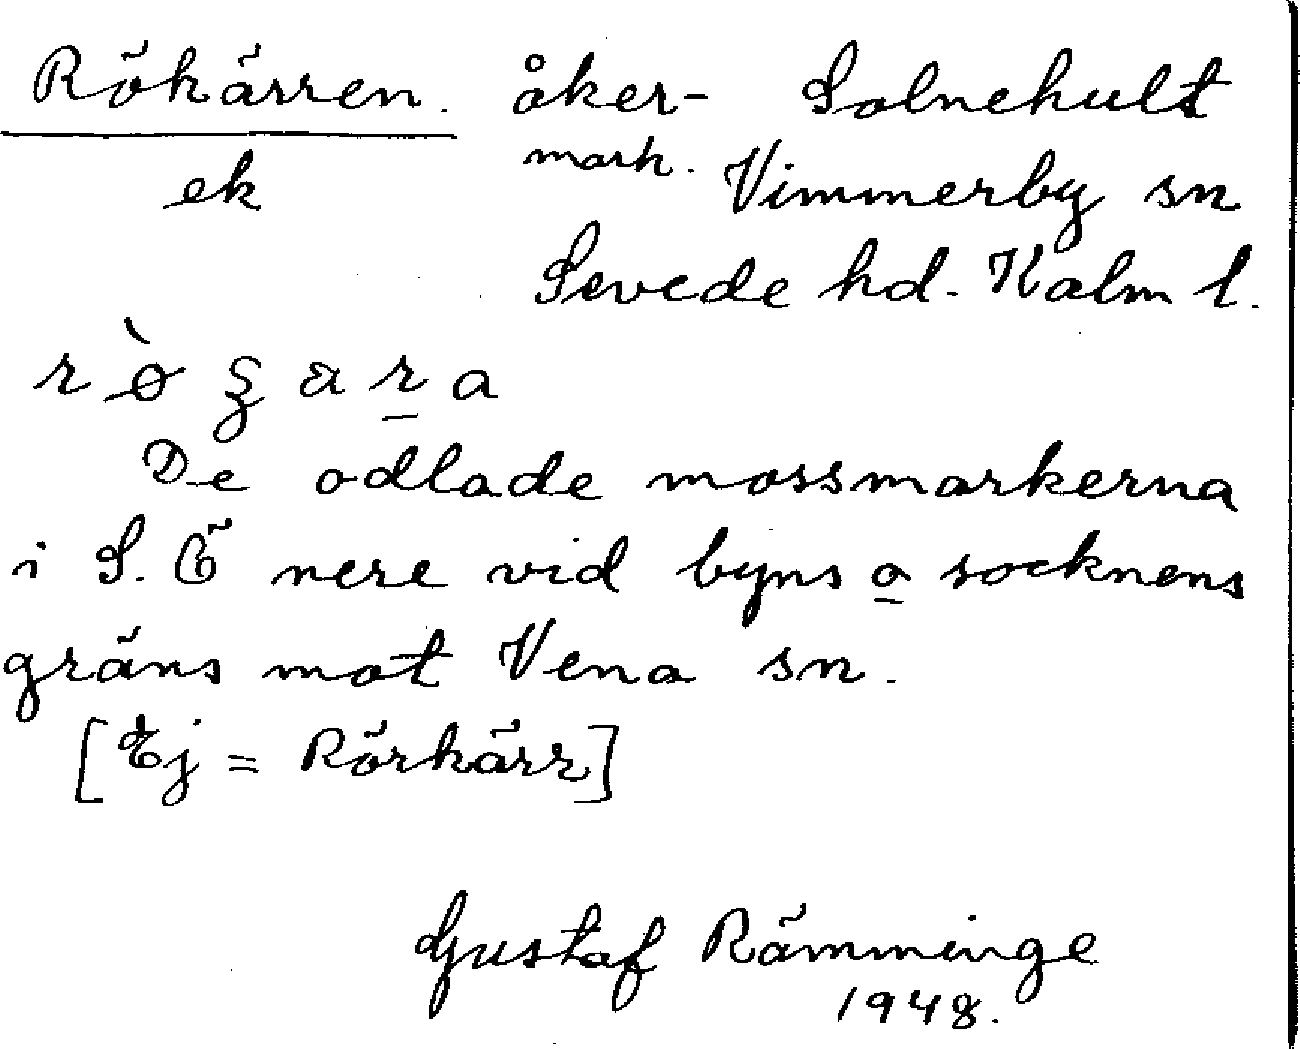 Rökärren. åker- Solnehult
ek mark. Vimmerby sn
Sevede hd. Kalm l.
De odlade mossmarkerna
i S. Ö nere vid byns o socknens
gräns mot Vena sn.
[Ej = Rörkärr]
Gustaf Rämminge
1948.